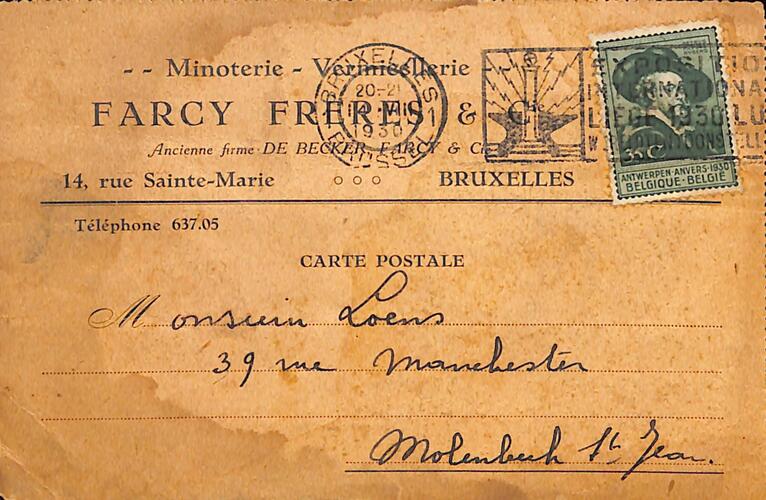 -- Minoterie - Vermicellerie
FARCY FRÈRES & Cie
Ancienne firme DE BECKER, FARCY & Cie
14, rue Sainte-Marie ooo BRUXELLES
Téléphone 637.05
CARTE POSTALE
Monsieur Loens
39 rue Manchester
Molenbeek St Jean.
BRUXELLES 1
20-21
VII
1930
BRUSSEL
EXPOSITION
INTERNATIONA
LIEGE 1930 LU
35 C
ANTWERPEN·ANVERS·1930
BELGIQUE·BELGIË